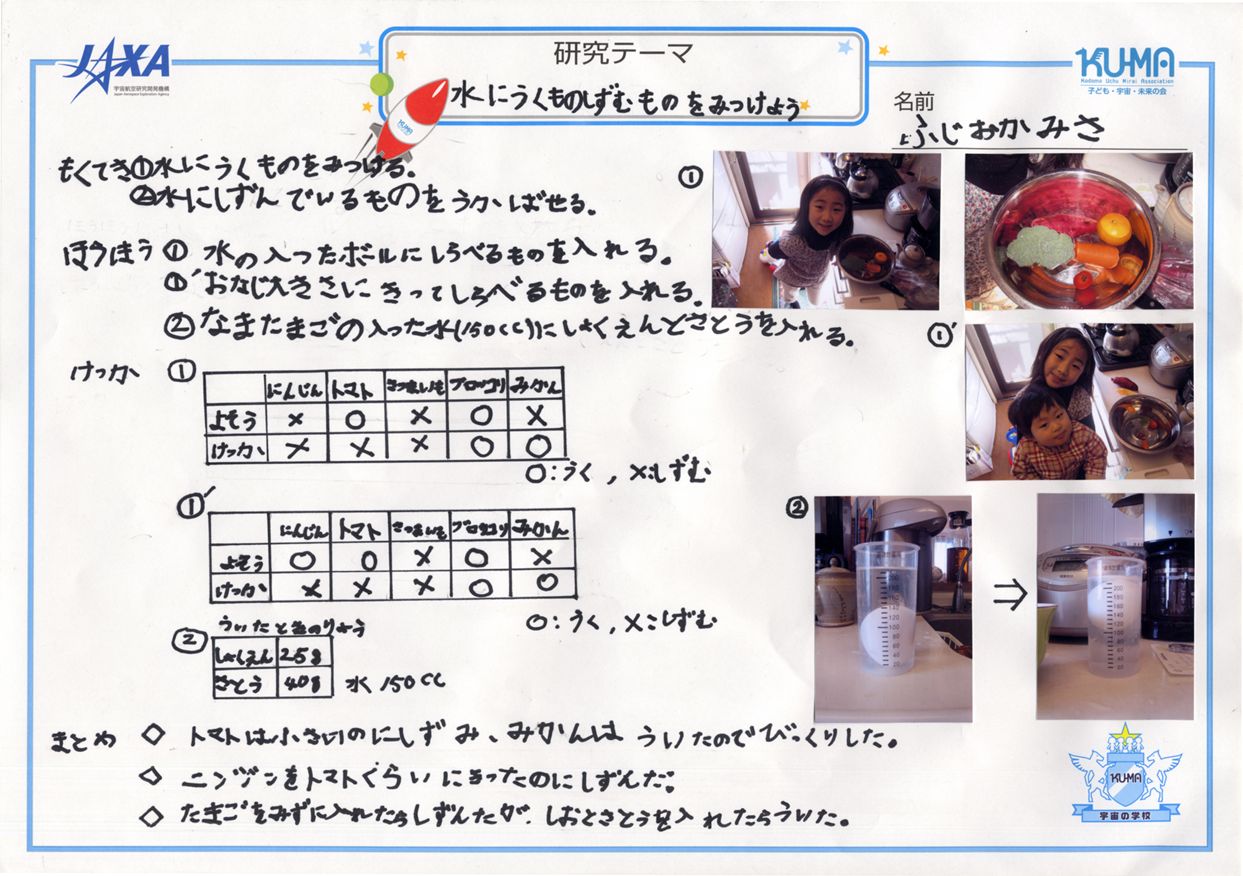 JAXA
宇宙航空研究開発機構
Japan Aerospace Exploration Agency
研究テーマ
水にうくものしずむものをみつけよう
KUMA
KU-MA
Kodomo Uchu Mirai Association
子ども・宇宙・未来の会
名前
ふじおかみさ
もくてき①水にうくものをみつける。
②水にしずんでいるものをうかばせる。
①
ほうほう ① 水の入ったボールにしらべるものを入れる。
①' おなじ大きさにきってしらべるものを入れる。
② なまたまごの入った水(150cc)にしょくえんとさとうを入れる。
①'
けっか ①
にんじん トマト さつまいも ブロッコリ みかん
よそう × ○ × ○ ×
けっか × × × ○ ○
○:うく, ×:しずむ
①'
にんじん トマト さつまいも ブロッコリ みかん
よそう ○ ○ × ○ ×
けっか × × × ○ ○
○:うく, ×:しずむ
②
ういたときのりょう
しょくえん 25g
さとう 40g 水 150cc
② ⇒
200
180
160
140
120
100
80
60
40
20
まとめ ◇ トマトは小さいのにしずみ、みかんはういたのでびっくりした。
◇ ニンジンをトマトぐらいにきったのにしずんだ。
◇ たまごをみずに入れたらしずんだが、しおとさとうを入れたらういた。
KU-MA
宇宙の学校